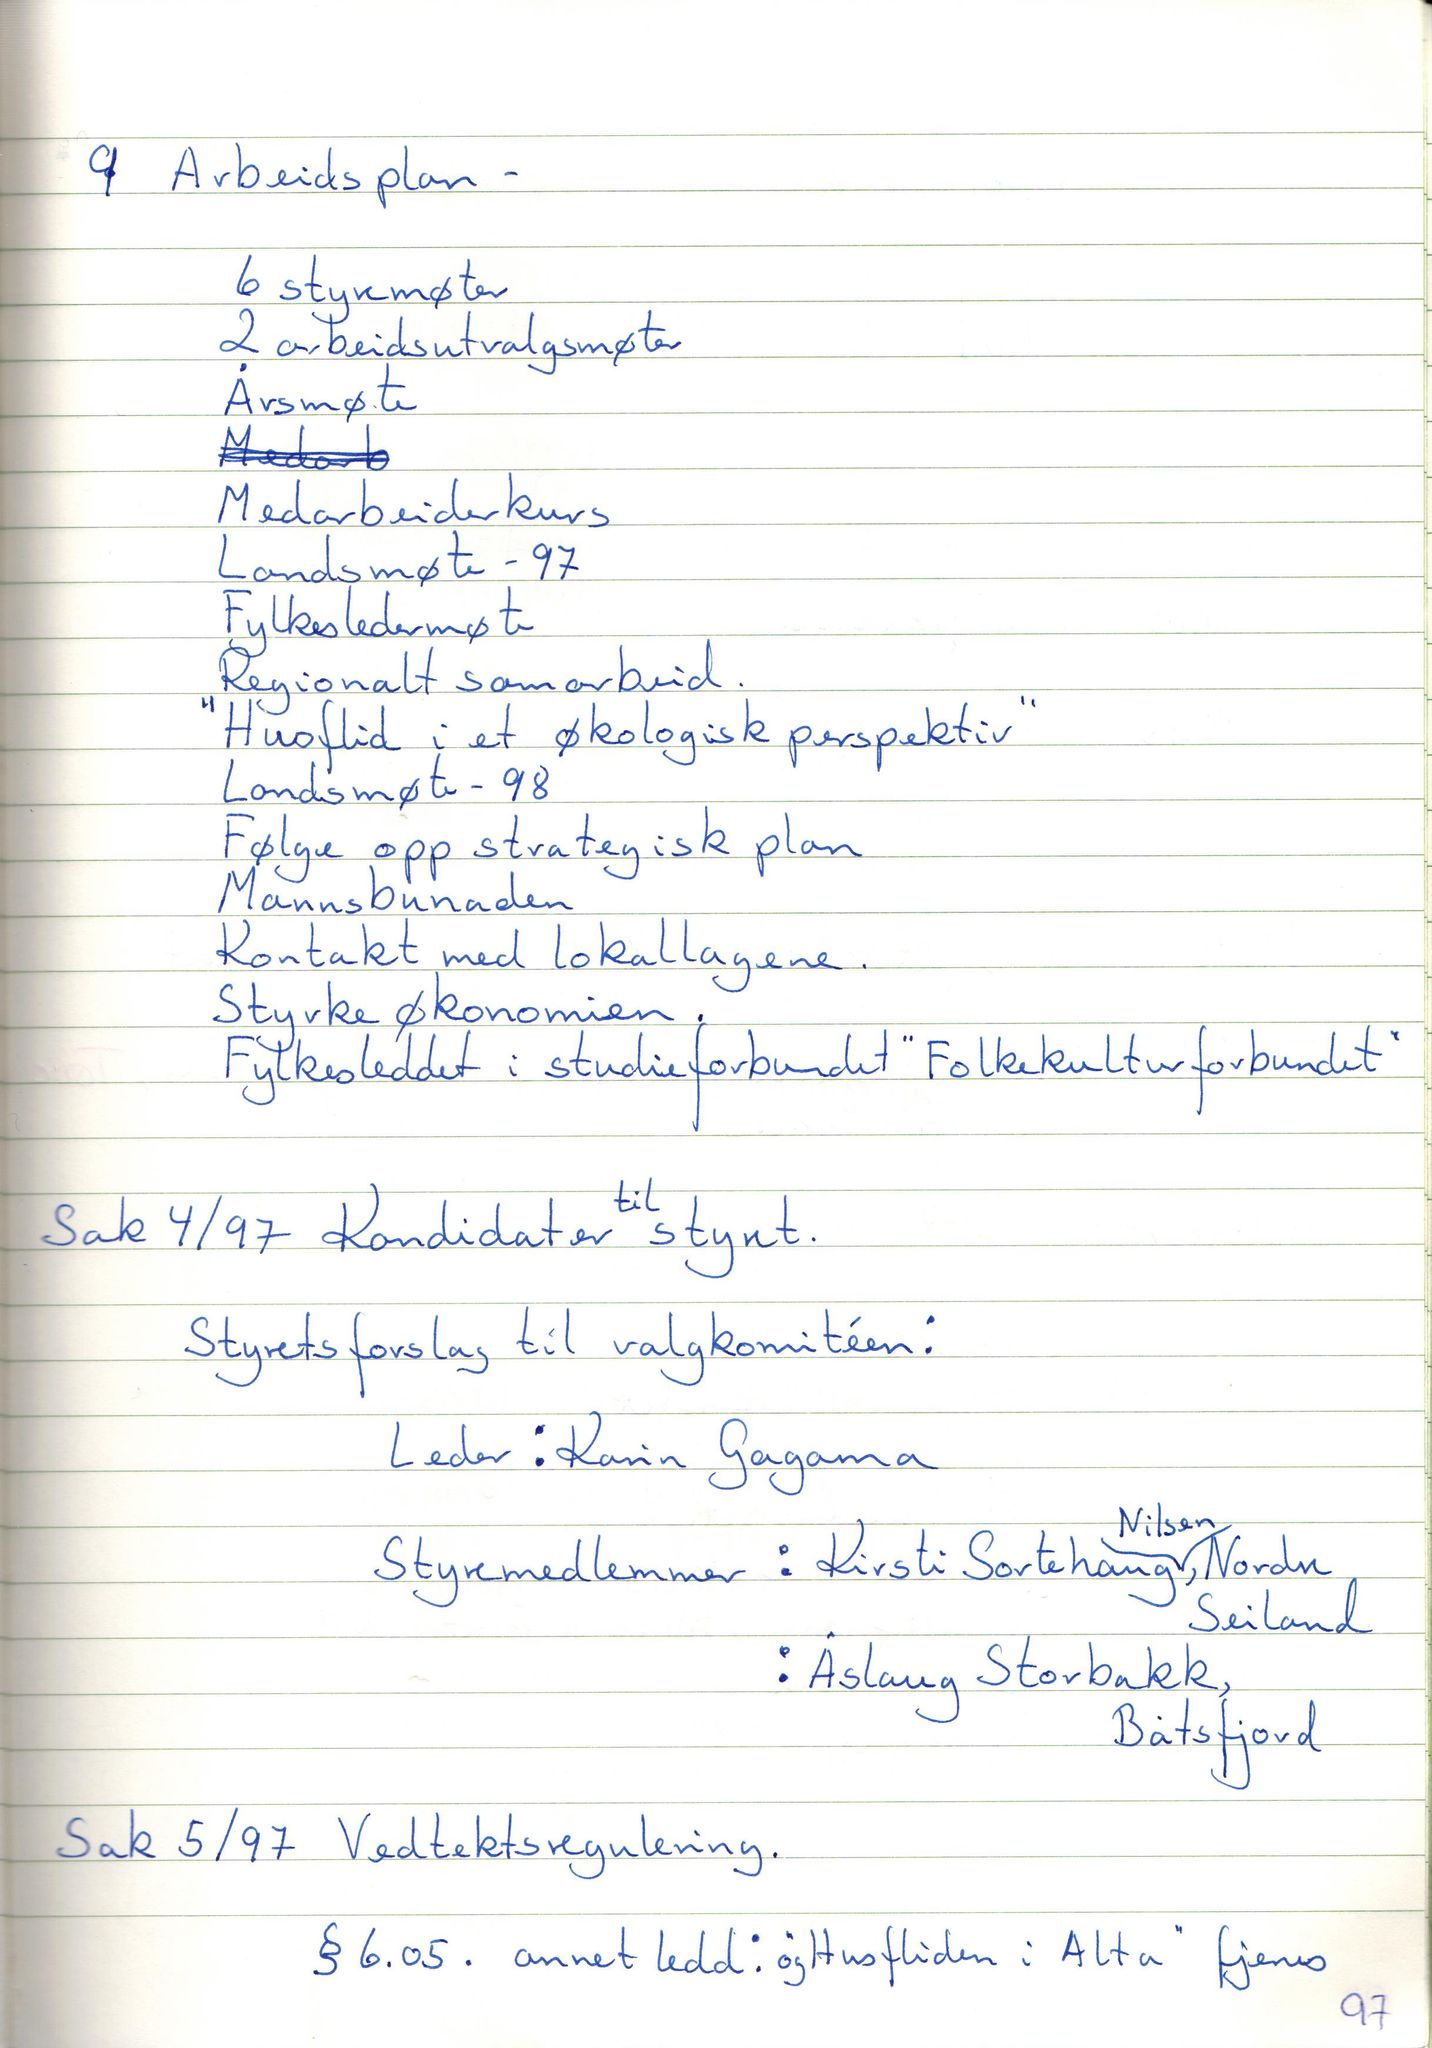 9 Arbeidsplan -
6 styremøter
2 arbeidsutvalgsmøter
Årsmøte
Medarb
Medarbeiderkurs
Landsmøte - 97
Fylkesledermøte
Regionalt samarbeid.
"Husflid i et økologisk perspektiv"
Landsmøte - 98
Følge opp strategisk plan
Mannsbunaden
Kontakt med lokallagene.
Styrke økonomien.
Fylkesleddet i studieforbundet "Folkekulturforbundet"
Sak 4/97 Kandidater til styret.
Styrets forslag til valgkomitéen:
Leder : Karin Gagama
Styremedlemmer : Kirsti Sortehaug Nilsen, Nordre
Seiland
: Åslaug Storbakk,
Båtsfjord
Sak 5/97 Vedtektsregulering.
§ 6.05. annet ledd: "og Husfliden i Alta" fjernes
97